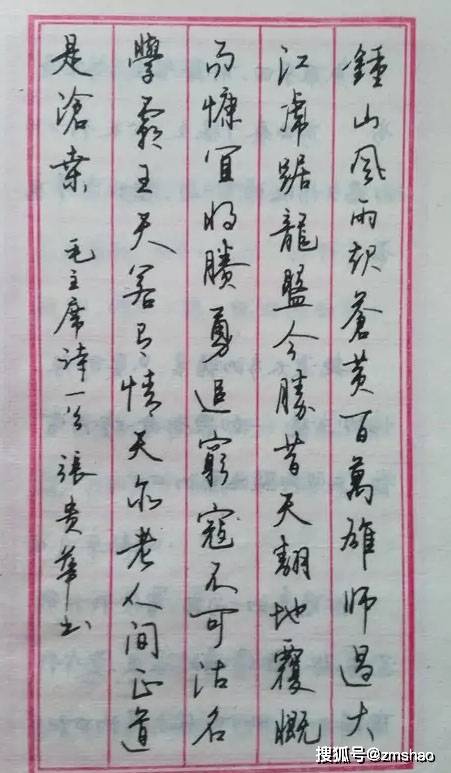 鍾山風雨起蒼黃百萬雄師過大
江虎踞龍盤今勝昔天翻地覆慨
而慷宜將賸勇追窮寇不可沽名
學霸王天若有情天亦老人間正道
是滄桑 毛主席詩一首 張貴華書
搜狐号@zmshao